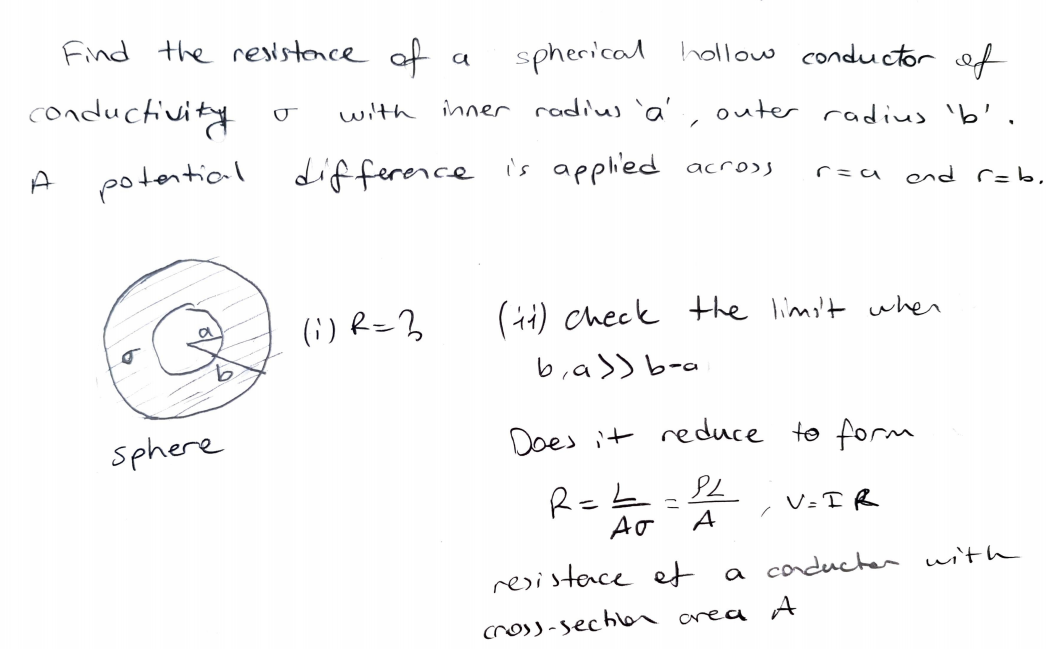 Find the resistance of a spherical hollow conductor of
conductivity σ with inner radius 'a', outer radius 'b'.
A potential difference is applied across r=a and r=b.
a
σ
b
sphere
(i) R=?
(ii) check the limit when
b,a>>b-a
Does it reduce to form
R = L/Aσ = ρL/A , V=IR
resistance of a conductor with
cross-section area A